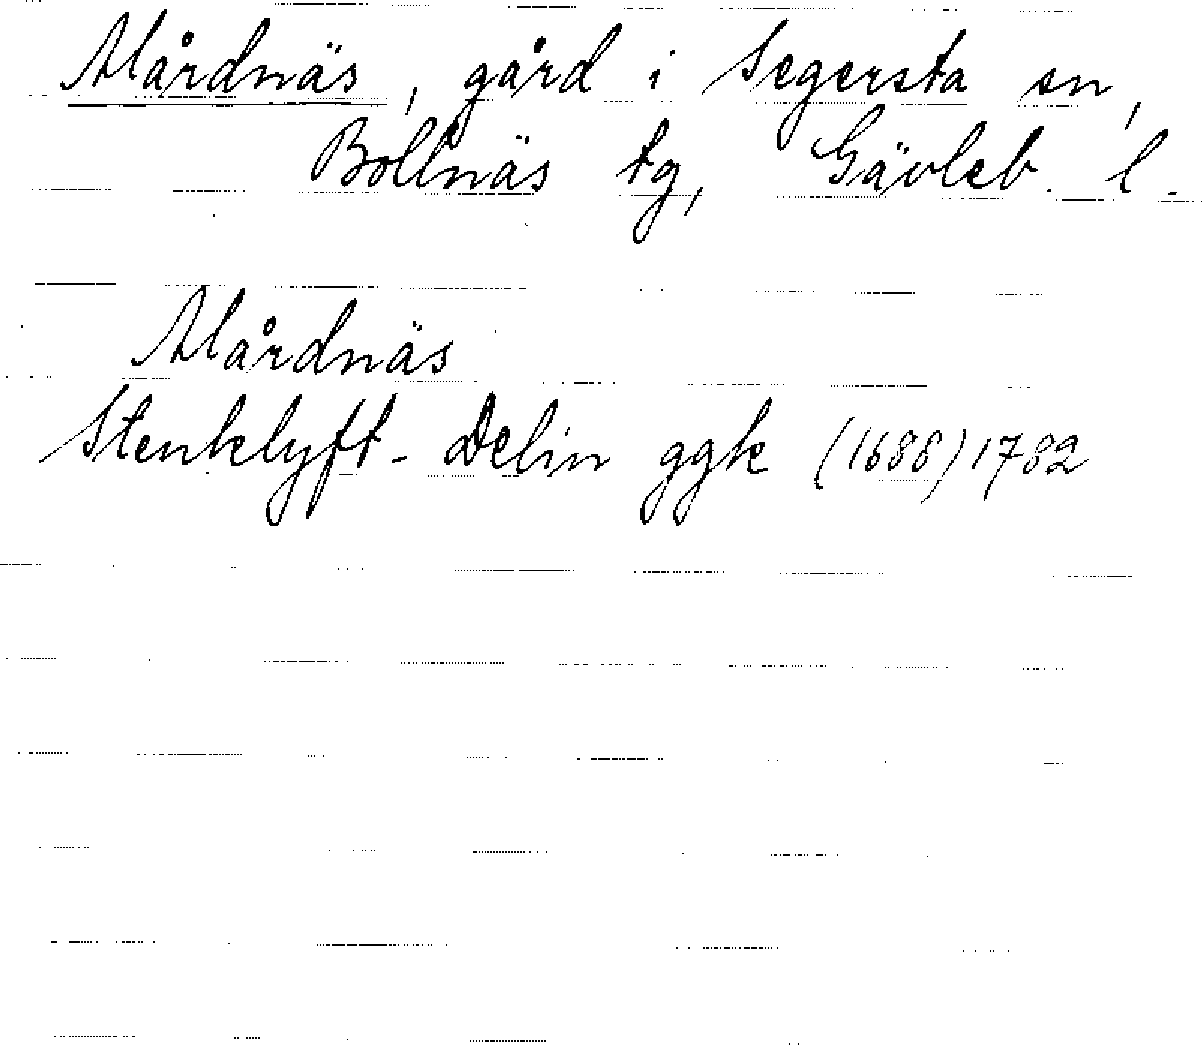 Mårdnäs, gård i Segersta sn,
Bollnäs tg, Gävleb. l.
Mårdnäs
Stenklyft-Delin ggk (1688) 1782